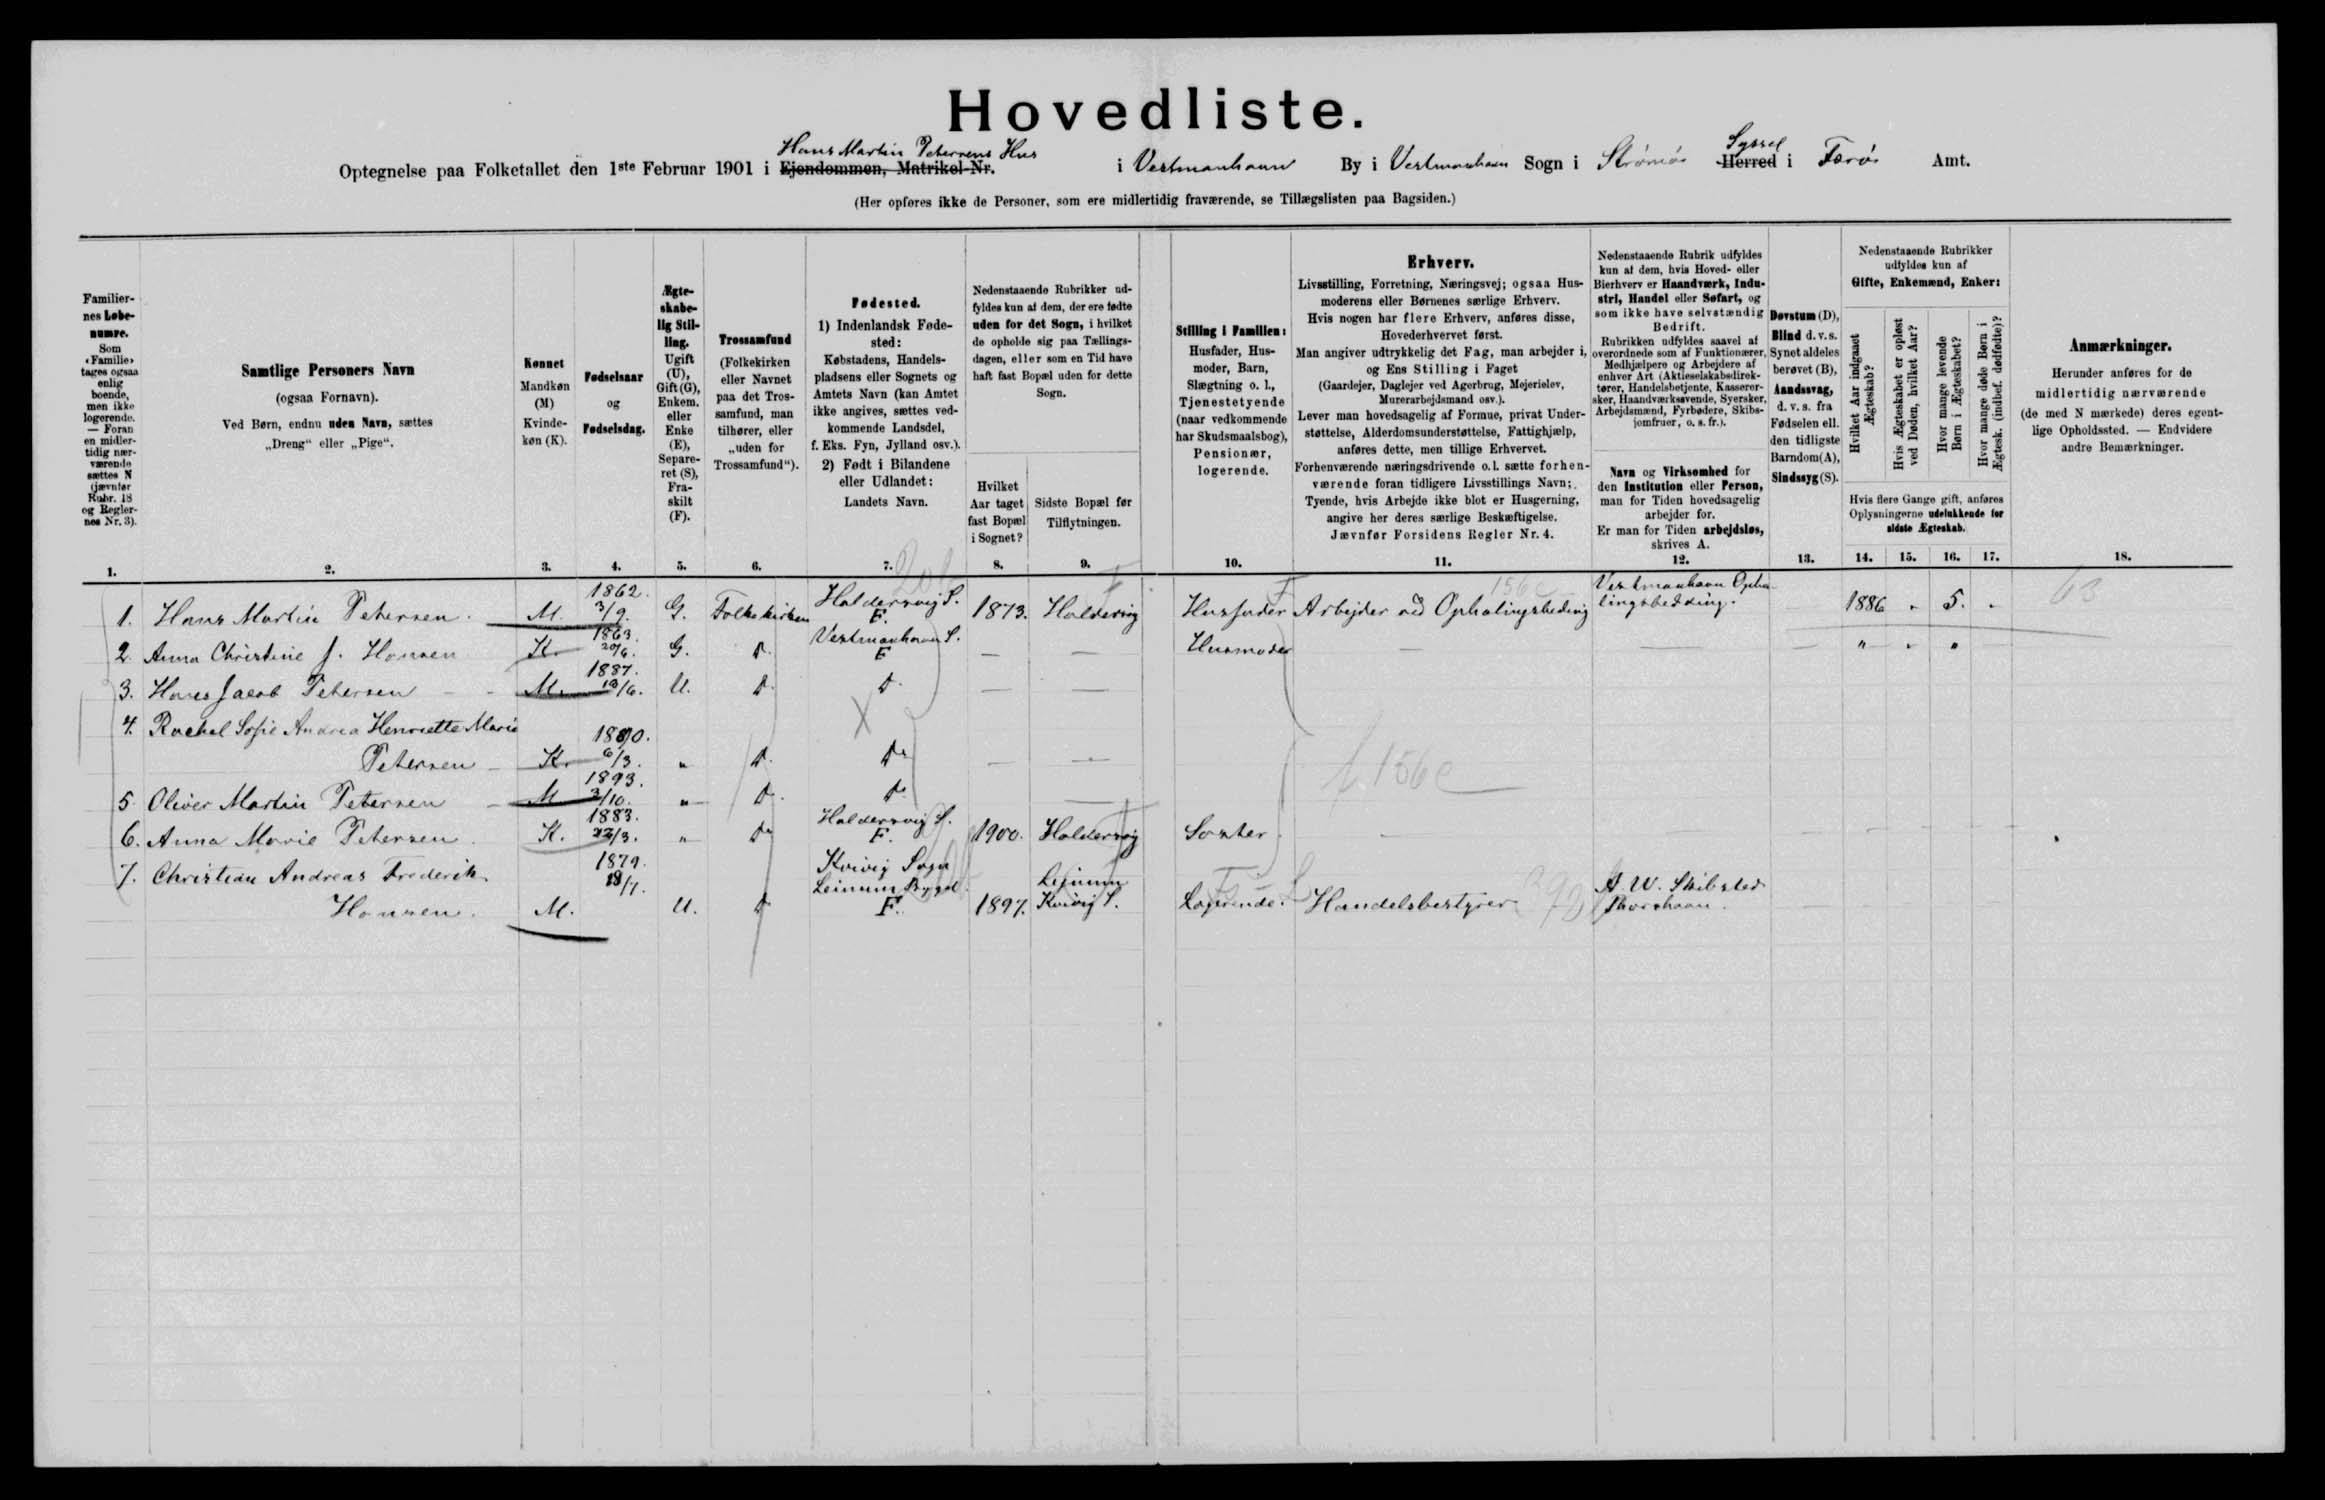 Hovedliste.
Hans Martin Petersens Hus
Syssel
Optegnelse paa Folketallet den 1ste Februar 1901 i Ejendommen, Matrikel-Nr. i Vestmanhavn By i Vestmanhavn Sogn i Strømø Herred i Færø Amt.
(Her opføres ikke de Personer, som ere midlertidig fraværende, se Tillægslisten paa Bagsiden.)
Familiernes Løbenumre.
Som «Familie» tages ogsaa enlig boende, men ikke logerende. — Foran en midlertidig nærværende sættes N (jævnfør Rubr. 18 og Reglernes Nr. 3).
Samtlige Personers Navn
(ogsaa Fornavn).
Ved Børn, endnu uden Navn, sættes
„Dreng“ eller „Pige“.
Kønnet
Mandkøn (M)
Kvindekøn (K).
Fødselsaar
og
Fødselsdag.
Ægteskabelig Stilling.
Ugift (U), Gift (G), Enkem. eller Enke (E), Separeret (S), Fraskilt (F).
Trossamfund
(Folkekirken eller Navnet paa det Trossamfund, man tilhører, eller „uden for Trossamfund“).
Fødested.
1) Indenlandsk Fødested:
Købstadens, Handelspladsens eller Sognets og Amtets Navn (kan Amtet ikke angives, sættes vedkommende Landsdel, f. Eks. Fyn, Jylland osv.).
2) Født i Bilandene eller Udlandet:
Landets Navn.
Nedenstaaende Rubrikker udfyldes kun af dem, der ere fødte uden for det Sogn, i hvilket de opholde sig paa Tællingsdagen, eller som en Tid have haft fast Bopæl uden for dette Sogn.
Hvilket Aar taget fast Bopæl i Sognet?
Sidste Bopæl før Tilflytningen.
Stilling i Familien:
Husfader, Husmoder, Barn, Slægtning o. l., Tjenestetyende (naar vedkommende har Skudsmaalsbog), Pensionær, logerende.
Erhverv.
Livsstilling, Forretning, Næringsvej; ogsaa Husmoderens eller Børnenes særlige Erhverv.
Hvis nogen har flere Erhverv, anføres disse, Hovederhvervet først.
Man angiver udtrykkelig det Fag, man arbejder i, og Ens Stilling i Faget
(Gaardejer, Daglejer ved Agerbrug, Mejerielev, Murerarbejdsmand osv.).
Lever man hovedsagelig af Formue, privat Understøttelse, Alderdomsunderstøttelse, Fattighjælp, anføres dette, men tillige Erhvervet.
Forhenværende næringsdrivende o. l. sætte forhenværende foran tidligere Livsstillings Navn;
Tyende, hvis Arbejde ikke blot er Husgerning, angive her deres særlige Beskæftigelse.
Jævnfør Forsidens Regler Nr. 4.
Nedenstaaende Rubrik udfyldes kun af dem, hvis Hoved- eller Bierhverv er Haandværk, Industri, Handel eller Søfart, og som ikke have selvstændig Bedrift.
Rubrikken udfyldes saavel af overordnede som af Funktionærer, Medhjælpere og Arbejdere af enhver Art (Aktieselskabsdirektører, Handelsbetjente, Kasserersker, Haandværkssvende, Syersker, Arbejdsmænd, Fyrbødere, Skibsjomfruer, o. s. fr.).
Navn og Virksomhed for den Institution eller Person, man for Tiden hovedsagelig arbejder for.
Er man for Tiden arbejdsløs, skrives A.
Døvstum (D), Blind d. v. s. Synet aldeles berøvet (B), Aandssvag, d. v. s. fra Fødselen ell. den tidligste Barndom (A), Sindssyg (S).
Nedenstaaende Rubrikker udfyldes kun af
Gifte, Enkemænd, Enker:
Hvilket Aar indgaaet Ægteskab?
Hvis Ægteskabet er opløst ved Døden, hvilket Aar?
Hvor mange levende Børn i Ægteskabet?
Hvor mange døde Børn i Ægtesk. (indbef. dødfødte)?
Hvis flere Gange gift, anføres Oplysningerne udelukkende for sidste Ægteskab.
Anmærkninger.
Herunder anføres for de midlertidig nærværende (de med N mærkede) deres egentlige Opholdssted. — Endvidere andre Bemærkninger.
1. 2. 3. 4. 5. 6. 7. 8. 9. 10. 11. 12. 13. 14. 15. 16. 17. 18.
1. Hans Martin Petersen. M. 1862. 3/9. G. Folkekirken Haldersvig S. F. 1873. Haldersvig Husfader Arbejder ved Ophalingsbeding 156 c Vestmanhavn Ophalingsbedding. 1886 " 5. " 63
2. Anna Christine J. Hansen K. 1863. 20/6. G. D. Vestmanhavn S. F — — Husmoder — — — " " "
3. Hans Jacob Petersen - - M. 1887. 13/6. U. D. D. — —
4. Rachel Sofie Andrea Henriette Marie
Petersen - K. 1890. 6/3. " D. Do — —
X
f. 156 c
5. Oliver Martin Petersen - M 1893. 3/10. " D. D. —
6. Anna Marie Petersen. K. 1883. 22/3. " Do Haldersvig S. F. 1900. Haldersvig Søster. —
7. Christian Andreas Frederik
Hansen. M. 1879. 18/7. U. D Kvivig Sogn Leinum Bygd. F. 1897. Leinum Kvivig S. Logerende. Handelsbestyrer A. W. Skibsted Thorshavn.